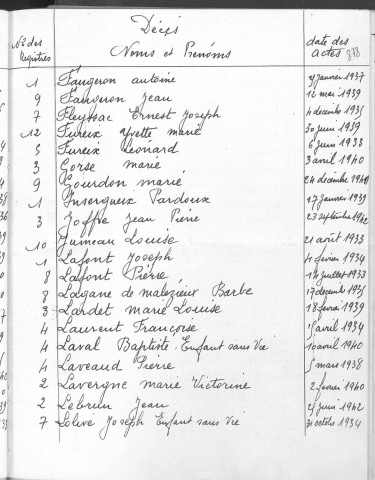 Décès
Nos des Registres Noms et Prénoms date des actes 878
1 Faugeron antoine 29 janvier 1937
9 Faugeron Jean 12 mai 1939
7 Fleyssac Ernest Joseph 4 decembre 1935
12 Fureix Yvette marie 30 juin 1939
5 Fureix Léonard 6 juin 1933
3 Gorse marié 3 avril 1940
9 Gourdon marié 24 décembre
1 Insergueix Pardoux 17 janvier 1939
3 Joffre Jean Pierre 23 septembre 1942
10 Jumeau Louise 21 août 1933
1 Lafont Joseph 4 fevrier 1934
8 Lafont Pierre 14 juillet 1933
8 Lagane de malezieux Barbe 17 decembre 1935
3 Lardet marie Louise 18 fevrier 1939
4 Laurent Françoise avril 1934
4 Laval Baptiste. Enfant sans Vie 10 avril 1940
4 Laveaud Pierre 5 mars 1938
2 Lavergne marie Victorine 2 fevrier 1940
2 Lebrun Jean 25 juin 1942
7 Lolivé Joseph Enfant sans Vié 31 octobre 1934